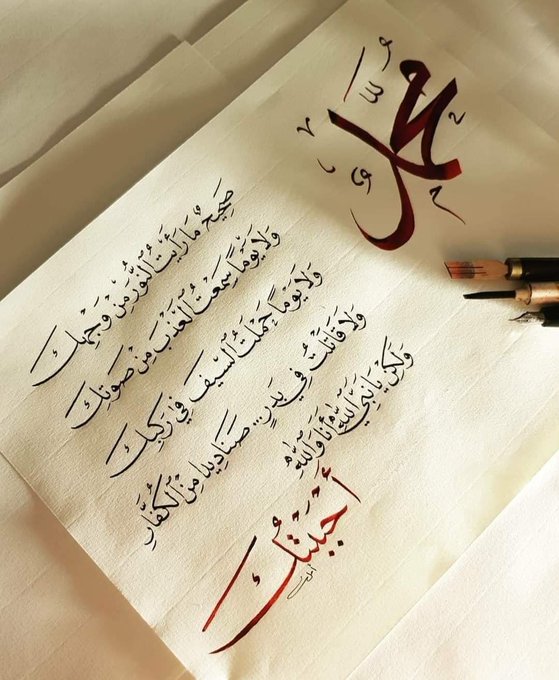 محمد
صَحِيحٌ مَا رَأَيْتُ النُّورَ مِنْ وَجْهِكَ
وَلَا يَوْمًا سَمِعْتُ الْعَذْبَ مِنْ صَوْتِكَ
وَلَا يَوْمًا حَمَلْتُ السَّيْفَ فِي رَكْبِكَ
وَلَا قَاتَلْتُ فِي بَدْرٍ.. صَنَادِيدًا مِنَ الْكُفَّارِ
وَلَكِنْ يَا نَبِيَّ اللَّهِ أَنَا وَاللَّهِ
أَحْبَبْتُكَ